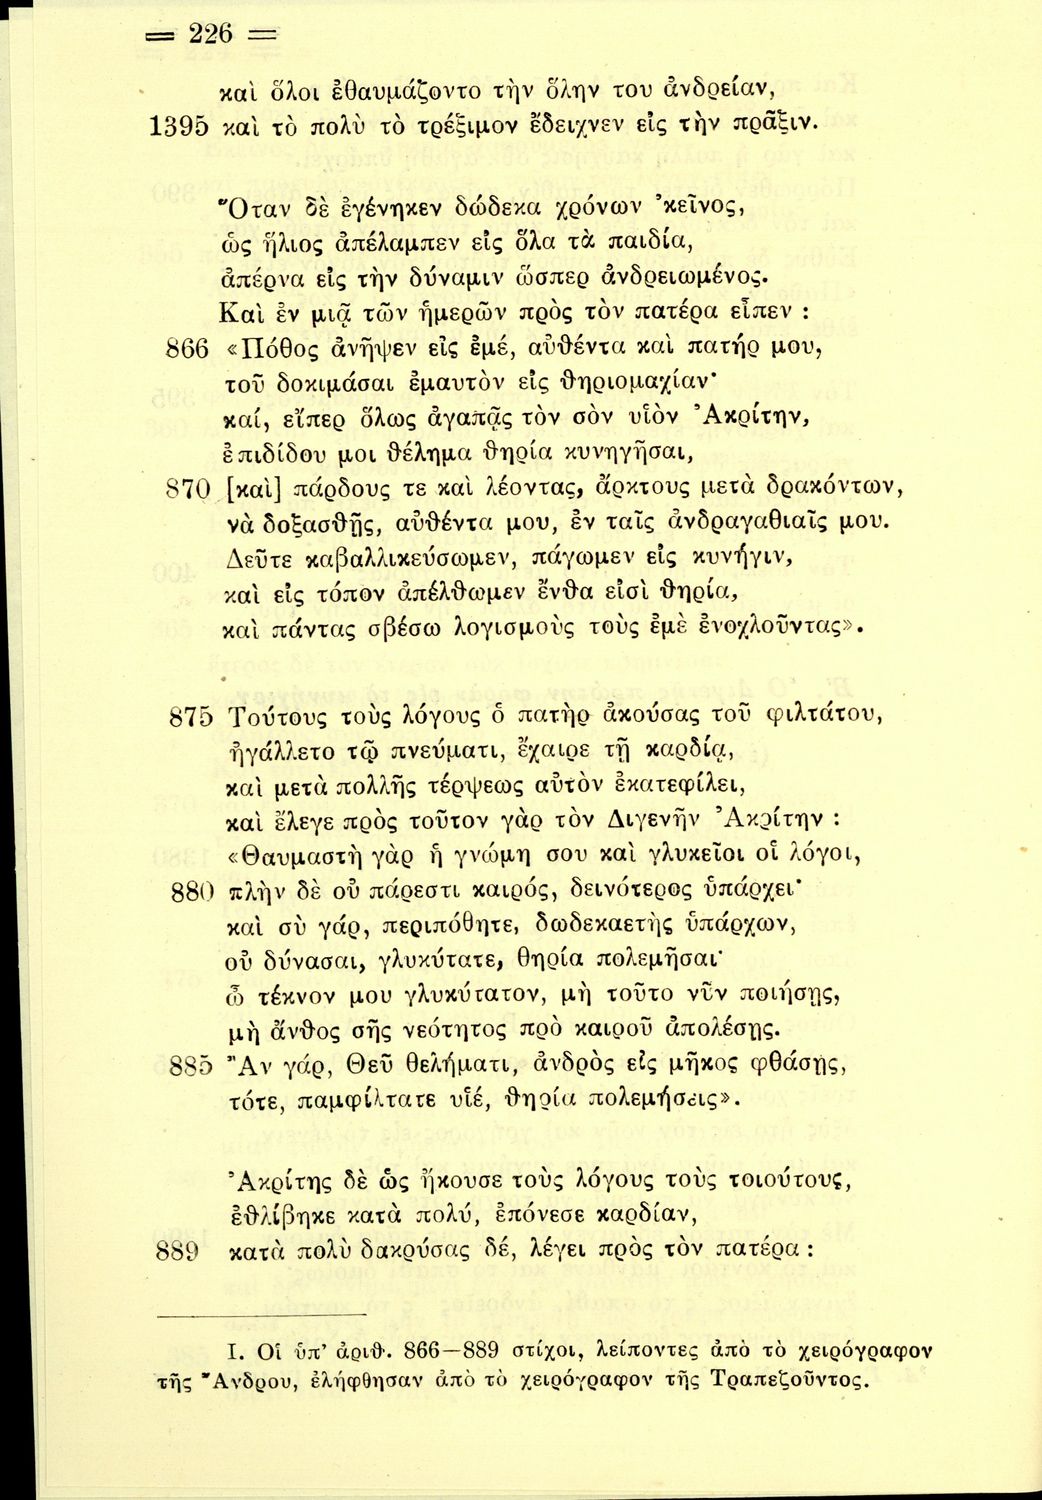 = 226 =
καὶ ὅλοι ἐθαυμάζοντο τὴν ὅλην του ἀνδρείαν,
1395 καὶ τὸ πολὺ τὸ τρέξιμον ἔδειχνεν εἰς τὴν πρᾶξιν.
Ὅταν δὲ ἐγένηκεν δώδεκα χρόνων ᾽κεῖνος,
ὡς ἥλιος ἀπέλαμπεν εἰς ὅλα τὰ παιδία,
ἀπέρνα εἰς τὴν δύναμιν ὥσπερ ἀνδρειωμένος.
Καὶ ἐν μιᾷ τῶν ἡμερῶν πρὸς τὸν πατέρα εἶπεν :
866 «Πόθος ἀνῆψεν εἰς ἐμέ, αὐθέντα καὶ πατήρ μου,
τοῦ δοκιμάσαι ἐμαυτὸν εἰς θηριομαχίαν·
καί, εἴπερ ὅλως ἀγαπᾷς τὸν σὸν υἱὸν Ἀκρίτην,
ἐπιδίδου μοι θέλημα θηρία κυνηγῆσαι,
870 [καὶ] πάρδους τε καὶ λέοντας, ἄρκτους μετὰ δρακόντων,
νὰ δοξασθῇς, αὐθέντα μου, ἐν ταῖς ἀνδραγαθιαῖς μου.
Δεῦτε καβαλλικεύσωμεν, πάγωμεν εἰς κυνήγιν,
καὶ εἰς τόπον ἀπέλθωμεν ἔνθα εἰσὶ θηρία,
καὶ πάντας σβέσω λογισμοὺς τοὺς ἐμὲ ἐνοχλοῦντας».
875 Τούτους τοὺς λόγους ὁ πατὴρ ἀκούσας τοῦ φιλτάτου,
ἠγάλλετο τῷ πνεύματι, ἔχαιρε τῇ καρδίᾳ,
καὶ μετὰ πολλῆς τέρψεως αὐτὸν ἐκατεφίλει,
καὶ ἔλεγε πρὸς τοῦτον γὰρ τὸν Διγενῆν Ἀκρίτην :
«Θαυμαστὴ γὰρ ἡ γνώμη σου καὶ γλυκεῖοι οἱ λόγοι,
880 πλὴν δὲ οὐ πάρεστι καιρός, δεινότερος ὑπάρχει·
καὶ σὺ γάρ, περιπόθητε, δωδεκαετὴς ὑπάρχων,
οὐ δύνασαι, γλυκύτατε, θηρία πολεμῆσαι·
ὦ τέκνον μου γλυκύτατον, μὴ τοῦτο νῦν ποιήσῃς,
μὴ ἄνθος σῆς νεότητος πρὸ καιροῦ ἀπολέσῃς.
885 Ἂν γάρ, Θεῦ θελήματι, ἀνδρὸς εἰς μῆκος φθάσῃς,
τότε, παμφίλτατε υἱέ, θηρία πολεμήσεις».
Ἀκρίτης δὲ ὡς ἤκουσε τοὺς λόγους τοὺς τοιούτους,
ἐθλίβηκε κατὰ πολύ, ἐπόνεσε καρδίαν,
889 κατὰ πολὺ δακρύσας δέ, λέγει πρὸς τὸν πατέρα :
I. Οἱ ὑπ᾽ ἀριθ. 866—889 στίχοι, λείποντες ἀπὸ τὸ χειρόγραφον
τῆς Ἄνδρου, ἐλήφθησαν ἀπὸ τὸ χειρόγραφον τῆς Τραπεζοῦντος.